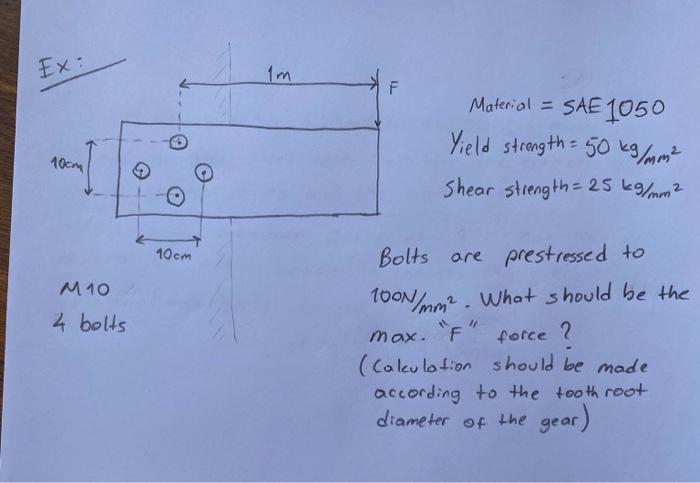 Ex:
1m
F
10cm
10cm
M10
4 bolts
Material = SAE 1050
Yield strength = 50 kg/mm²
Shear strength = 25 kg/mm²
Bolts are prestressed to
100N/mm². What should be the
max. "F" force ?
(Calculation should be made
according to the tooth root
diameter of the gear)